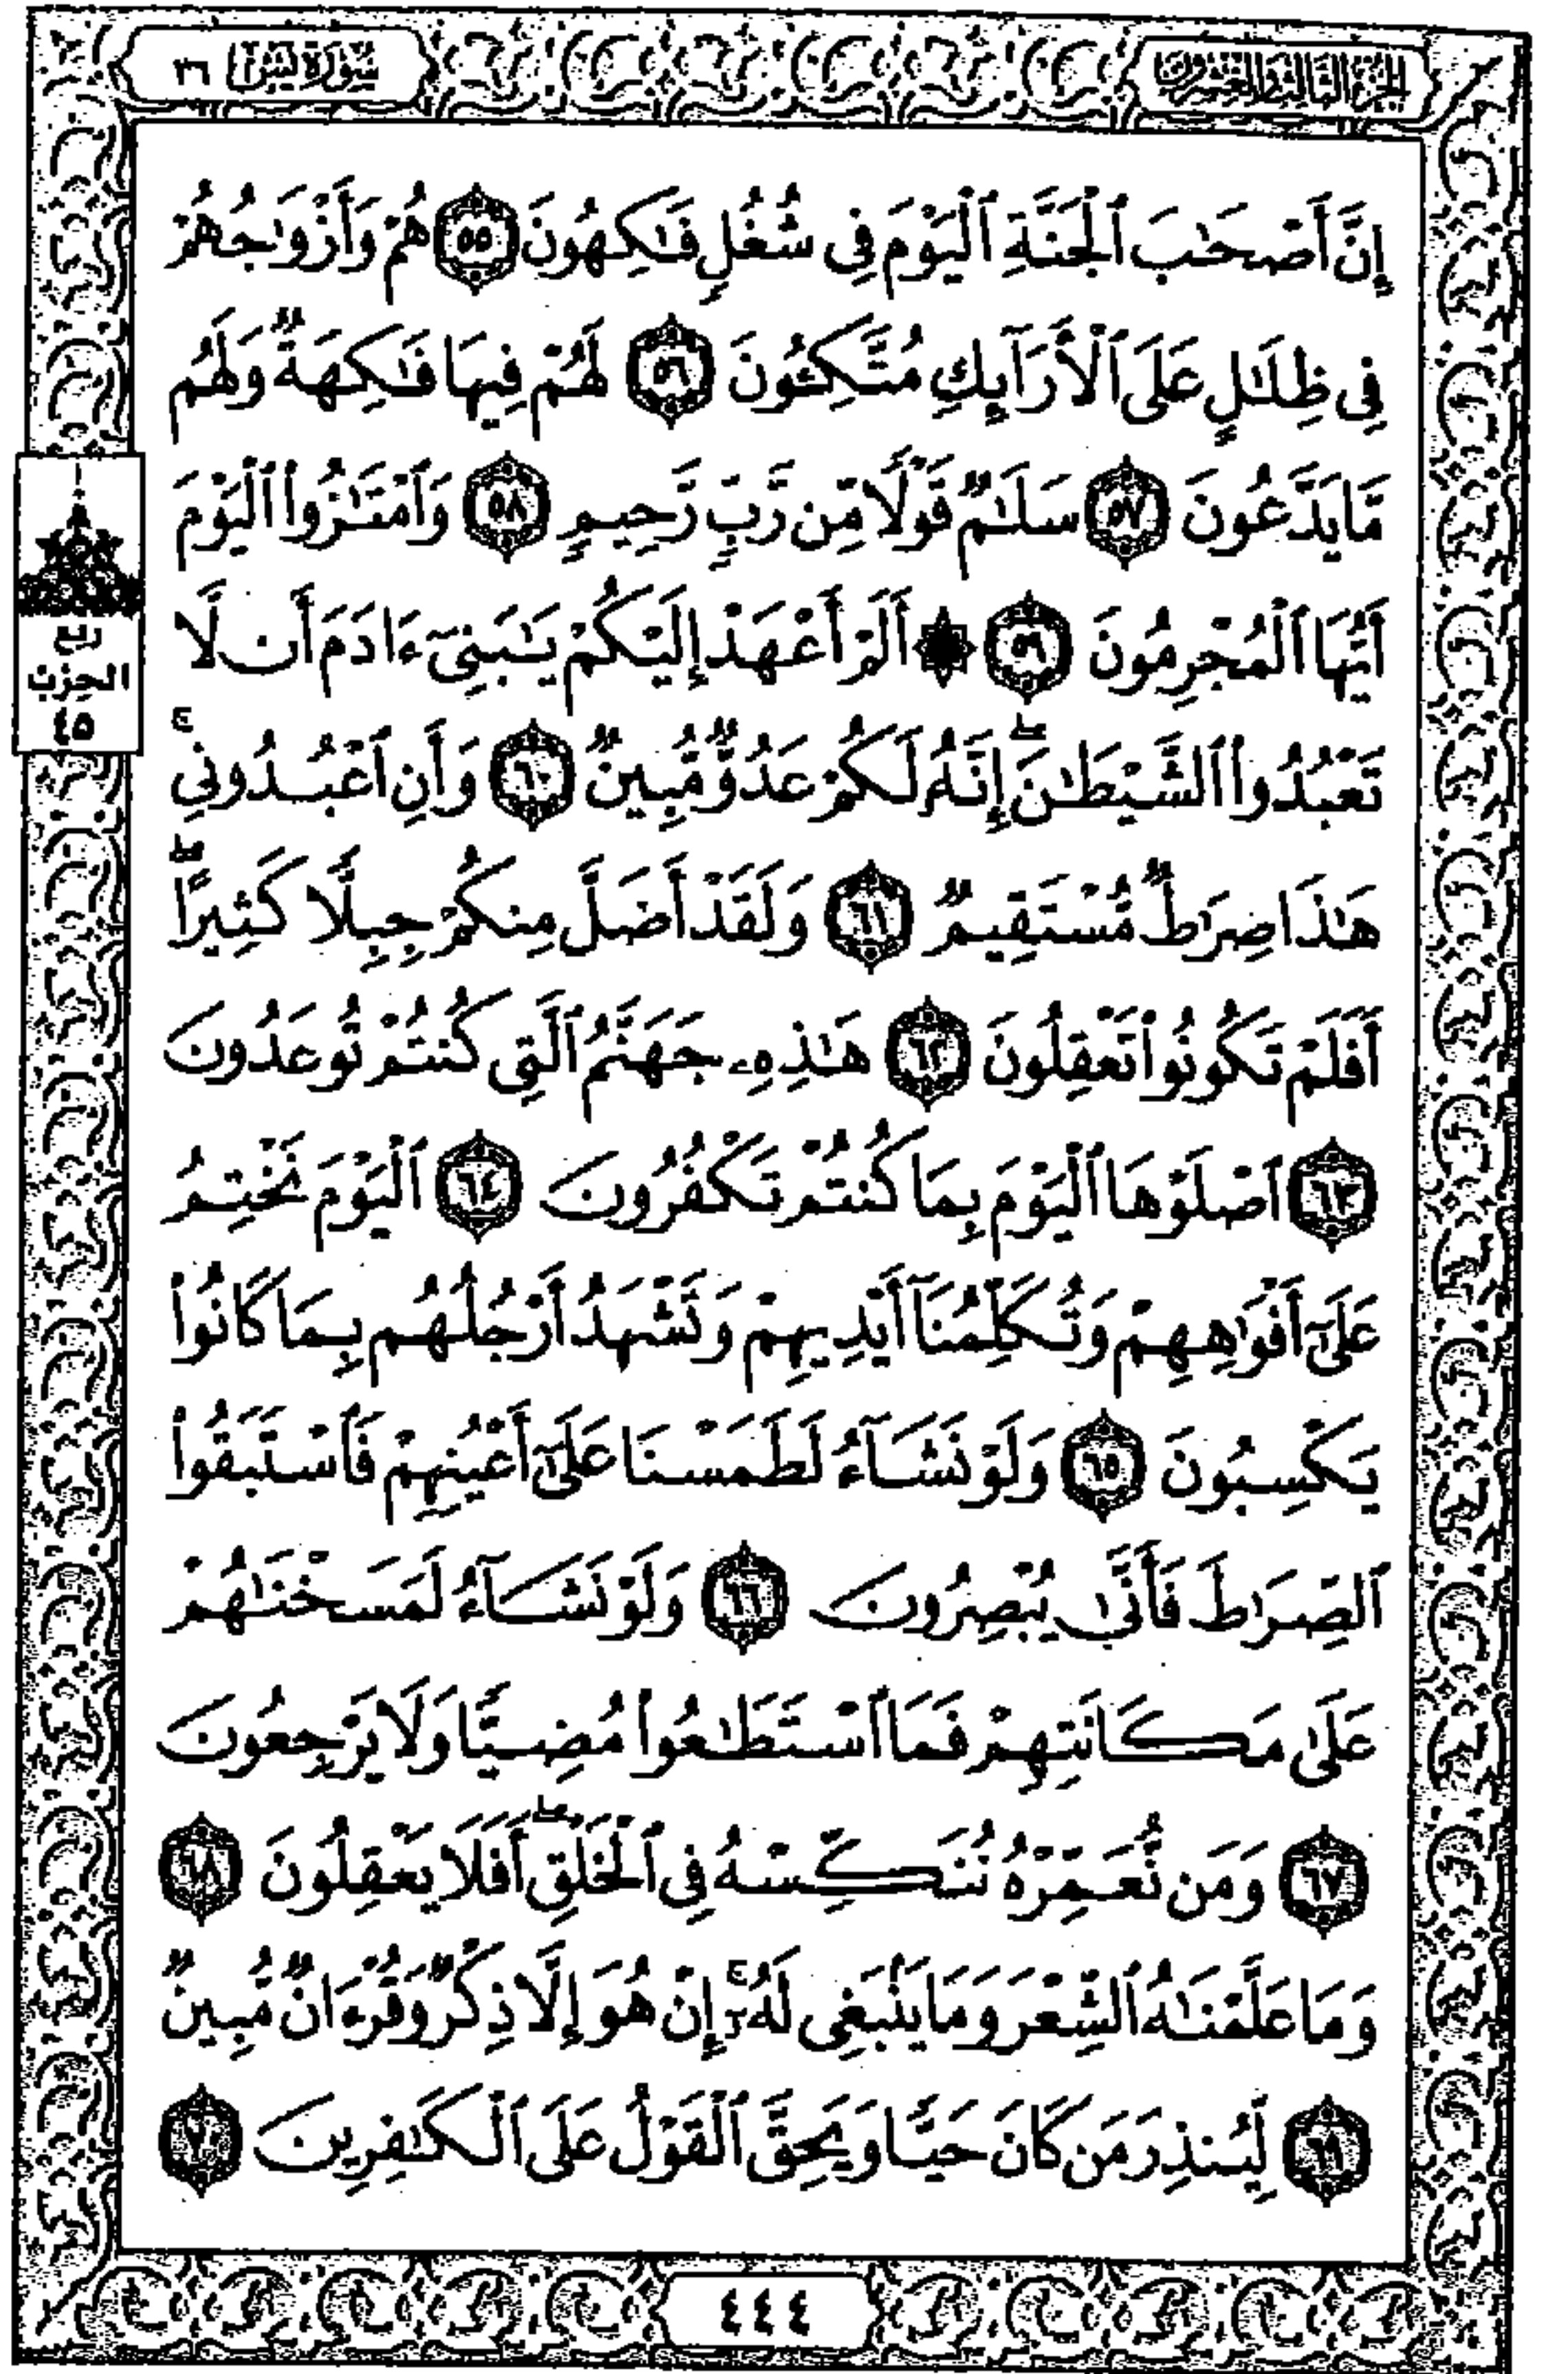 الجزء الثالث والعشرون
سورة يس ٣٦
إِنَّ أَصْحَٰبَ ٱلْجَنَّةِ ٱلْيَوْمَ فِى شُغُلٍ فَٰكِهُونَ ٥٥ هُمْ وَأَزْوَٰجُهُمْ
فِى ظِلَٰلٍ عَلَى ٱلْأَرَآئِكِ مُتَّكِـُٔونَ ٥٦ لَهُمْ فِيهَا فَٰكِهَةٌ وَلَهُم
مَّا يَدَّعُونَ ٥٧ سَلَٰمٌ قَوْلًا مِّن رَّبٍّ رَّحِيمٍ ٥٨ وَٱمْتَٰزُوا۟ ٱلْيَوْمَ
أَيُّهَا ٱلْمُجْرِمُونَ ٥٩ ۞ أَلَمْ أَعْهَدْ إِلَيْكُمْ يَٰبَنِىٓ ءَادَمَ أَن لَّا
تَعْبُدُوا۟ ٱلشَّيْطَٰنَ ۖ إِنَّهُۥ لَكُمْ عَدُوٌّ مُّبِينٌ ٦٠ وَأَنِ ٱعْبُدُونِى ۚ
هَٰذَا صِرَٰطٌ مُّسْتَقِيمٌ ٦١ وَلَقَدْ أَضَلَّ مِنكُمْ جِبِلًّا كَثِيرًا ۖ
أَفَلَمْ تَكُونُوا۟ تَعْقِلُونَ ٦٢ هَٰذِهِۦ جَهَنَّمُ ٱلَّتِى كُنتُمْ تُوعَدُونَ
٦٣ ٱصْلَوْهَا ٱلْيَوْمَ بِمَا كُنتُمْ تَكْفُرُونَ ٦٤ ٱلْيَوْمَ نَخْتِمُ
عَلَىٰٓ أَفْوَٰهِهِمْ وَتُكَلِّمُنَآ أَيْدِيهِمْ وَتَشْهَدُ أَرْجُلُهُم بِمَا كَانُوا۟
يَكْسِبُونَ ٦٥ وَلَوْ نَشَآءُ لَطَمَسْنَا عَلَىٰٓ أَعْيُنِهِمْ فَٱسْتَبَقُوا۟
ٱلصِّرَٰطَ فَأَنَّىٰ يُبْصِرُونَ ٦٦ وَلَوْ نَشَآءُ لَمَسَخْنَٰهُمْ
عَلَىٰ مَكَانَتِهِمْ فَمَا ٱسْتَطَٰعُوا۟ مُضِيًّا وَلَا يَرْجِعُونَ
٦٧ وَمَن نُّعَمِّرْهُ نُنَكِّسْهُ فِى ٱلْخَلْقِ ۖ أَفَلَا يَعْقِلُونَ ٦٨
وَمَا عَلَّمْنَٰهُ ٱلشِّعْرَ وَمَا يَنۢبَغِى لَهُۥٓ ۚ إِنْ هُوَ إِلَّا ذِكْرٌ وَقُرْءَانٌ مُّبِينٌ
٦٩ لِّيُنذِرَ مَن كَانَ حَيًّا وَيَحِقَّ ٱلْقَوْلُ عَلَى ٱلْكَٰفِرِينَ ٧٠
ربع
الحزب
٤٥
٤٤٤